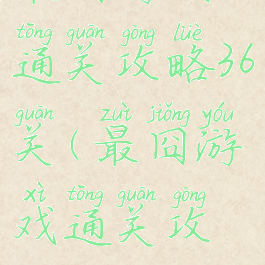 tōng guān gōng lüè
通关攻略36
guān zuì jiǒng yóu
关(最囧游
xì tōng guān gōng
戏通关攻